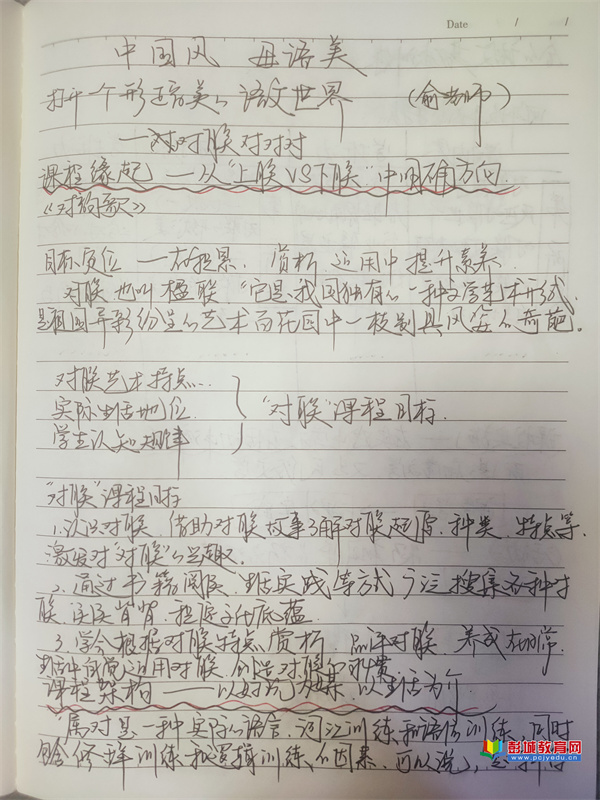 Date / /
中国风 母语美
打开一个形意美的语文世界 (俞老师)
—对对联对对对
课程缘起 —以"上联VS下联"中明确方向
《对韵歌》
目标定位 —在积累、赏析、运用中提升素养
对联也叫楹联,"它是我国独有的一种文学艺术形式,
是祖国异彩纷呈的艺术百花园中一枝别具风姿的奇葩。
对联艺术特点
实际生活地位
学生认知规律
"对联"课程目标
"对联"课程目标
1.认识对联,借助对联故事了解对联起源、种类、特点等,
激发对"对联"的兴趣。
2.通过书籍阅读、生活实践等方式广泛搜集各种对
联,积淀文化底蕴
3.学会根据对联特点赏析、点评对联,养成在日常
生活中自觉运用对联、创造对联的习惯
课程架构 ——以好玩为媒,以生活为介
"属对是一种实际的语言、词汇训练和语法训练,同时
包含修辞训练和逻辑训练的因素。可以说,
彭城教育网
www.pcjyedu.cn